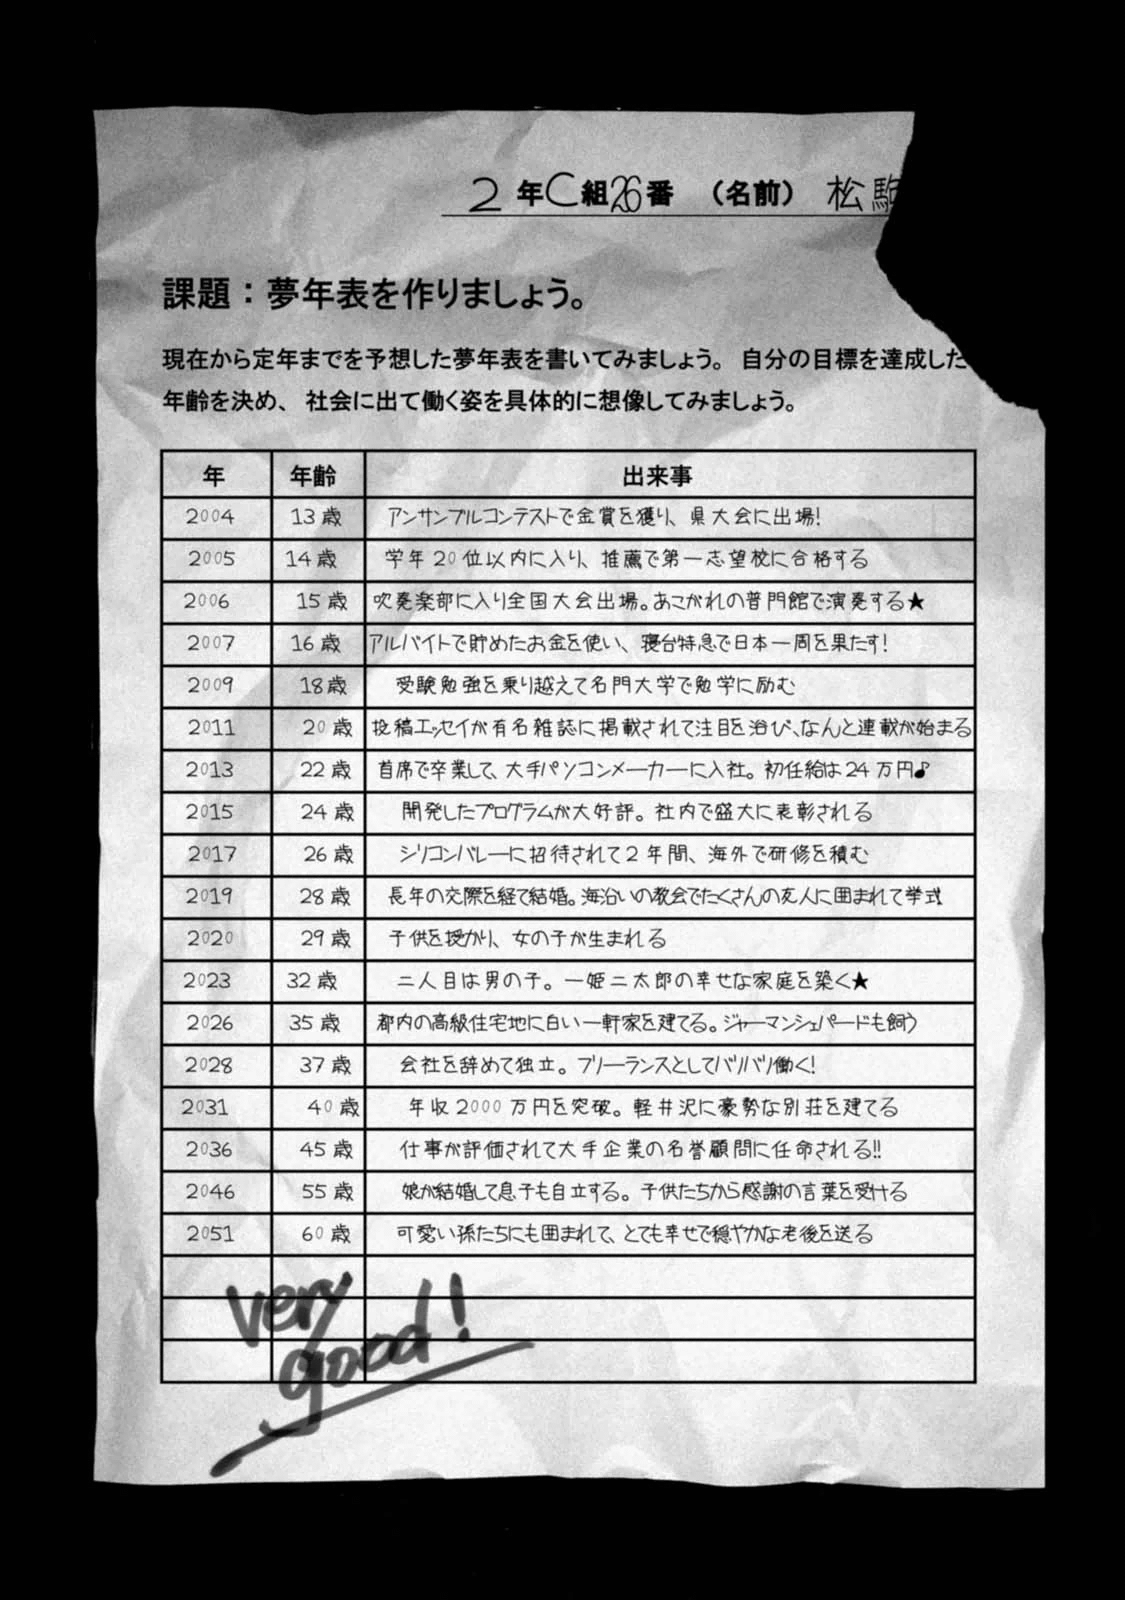 2年C組26番 （名前） 松駒
課題：夢年表を作りましょう。
現在から定年までを予想した夢年表を書いてみましょう。 自分の目標を達成した
年齢を決め、 社会に出て働く姿を具体的に想像してみましょう。
年 年齢 出来事
2004 13歳 アンサンブルコンテストで金賞を獲り、県大会に出場!
2005 14歳 学年20位以内に入り、推薦で第一志望校に合格する
2006 15歳 吹奏楽部に入り全国大会出場。あこがれの普門館で演奏する★
2007 16歳 アルバイトで貯めたお金を使い、寝台特急で日本一周を果たす!
2009 18歳 受験勉強を乗り越えて名門大学で勉学に励む
2011 20歳 投稿エッセイが有名雑誌に掲載されて注目を浴び、なんと連載が始まる
2013 22歳 首席で卒業して、大手パソコンメーカーに入社。初任給は24万円♪
2015 24歳 開発したプログラムが大好評。社内で盛大に表彰される
2017 26歳 シリコンバレーに招待されて2年間、海外で研修を積む
2019 28歳 長年の交際を経て結婚。海沿いの教会でたくさんの友人に囲まれて挙式
2020 29歳 子供を授かり、女の子が生まれる
2023 32歳 二人目は男の子。一姫二太郎の幸せな家庭を築く★
2026 35歳 都内の高級住宅地に白い一軒家を建てる。ジャーマンシェパードも飼う
2028 37歳 会社を辞めて独立。フリーランスとしてバリバリ働く!
2031 40歳 年収2000万円を突破。軽井沢に豪勢な別荘を建てる
2036 45歳 仕事が評価されて大手企業の名誉顧問に任命される!!
2046 55歳 娘が結婚して息子も自立する。子供たちから感謝の言葉を受ける
2051 60歳 可愛い孫たちにも囲まれて、とても幸せで穏やかな老後を送る
very
good!